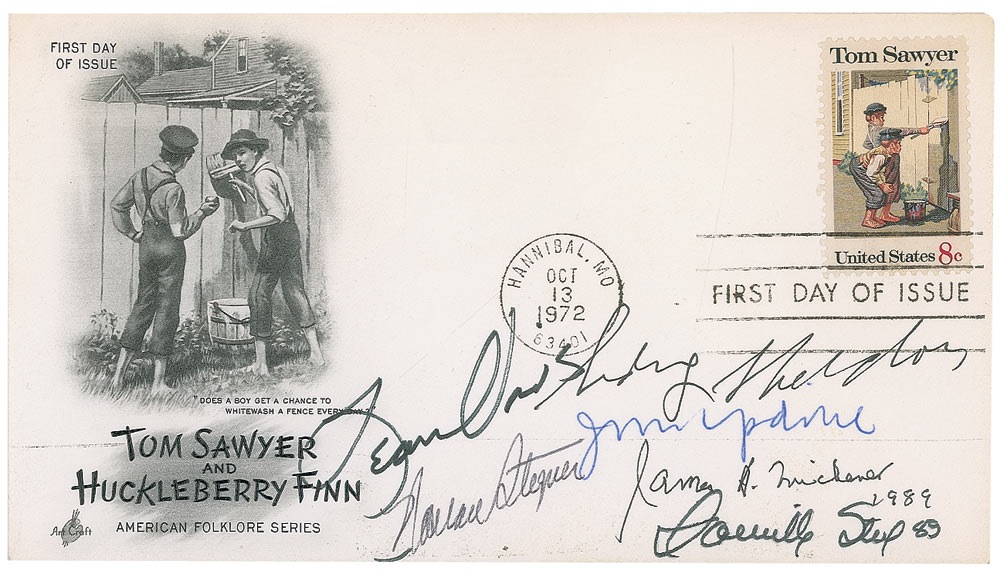 FIRST DAY
OF ISSUE
Tom Sawyer
United States 8c
HANNIBAL, MO
OCT
13
1972
63401
FIRST DAY OF ISSUE
"DOES A BOY GET A CHANCE TO
WHITEWASH A FENCE EVERY DAY?"
TOM SAWYER
AND
HUCKLEBERRY FINN
ArtCraft
AMERICAN FOLKLORE SERIES
Leon Uris
Sidney Sheldon
John Updike
Wallace Stegner
James A. Michener
1989
Danielle Steel 89